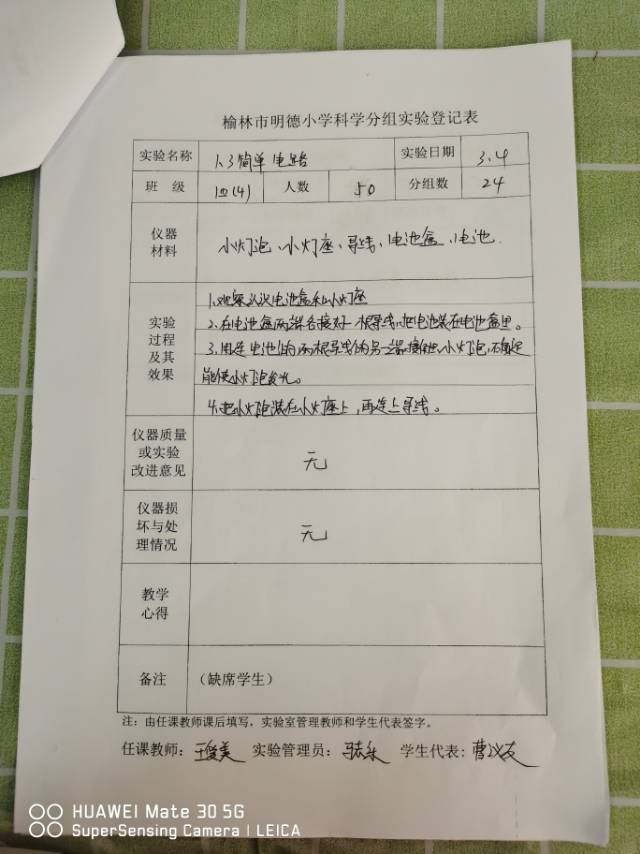 榆林市明德小学科学分组实验登记表
实验名称 1.3简单电路 实验日期 3.4
班 级 四(4) 人数 50 分组数 24
仪器
材料
小灯泡、小灯座、导线、电池盒、电池.
实验
过程
及其
效果
1.观察认识电池盒和小灯座
2.在电池盒两端各接好一根导线,把电池装在电池盒里。
3.用连电池的两根导线的另一端接触小灯泡,
能使小灯泡发光。
4.把小灯泡装在小灯座上,再连上导线。
仪器质量
或实验
改进意见
无
仪器损
坏与处
理情况
无
教学
心得
备注 (缺席学生)
注:由任课教师课后填写,实验室管理教师和学生代表签字。
任课教师: 实验管理员: 学生代表:
HUAWEI Mate 30 5G
SuperSensing Camera | LEICA